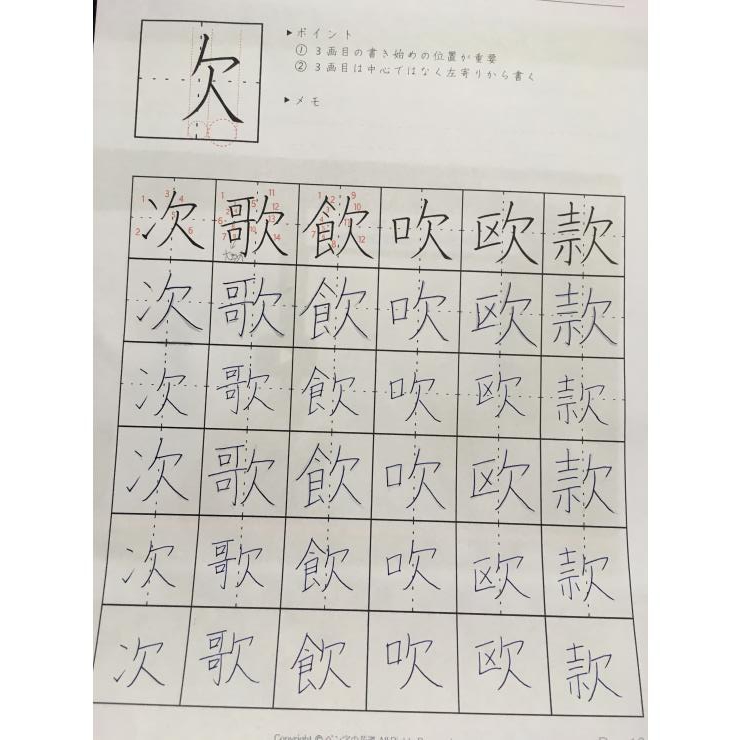 欠
▶ポイント
① 3画目の書き始めの位置が重要
② 3画目は中心ではなく左寄りから書く
▶メモ
次 歌 飲 吹 欧 款
次 歌 飲 吹 欧 款
次 歌 飲 吹 欧 款
次 歌 飲 吹 欧 款
次 歌 飲 吹 欧 款
次 歌 飲 吹 欧 款
Copyright © ペン字の